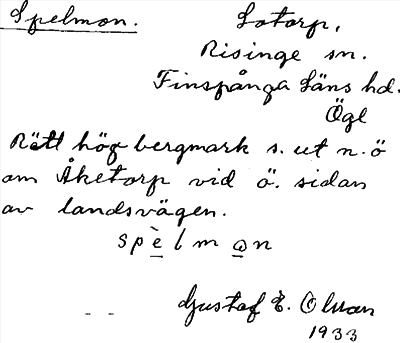 Spelmon.
Lotorp,
Risinge sn.
Finspånga läns hd.
Ögl
Rätt hög bergmark s. ut n. ö
om Åketorp vid ö. sidan
av landsvägen.
spèlmon
Gustaf E. Olsson
1933